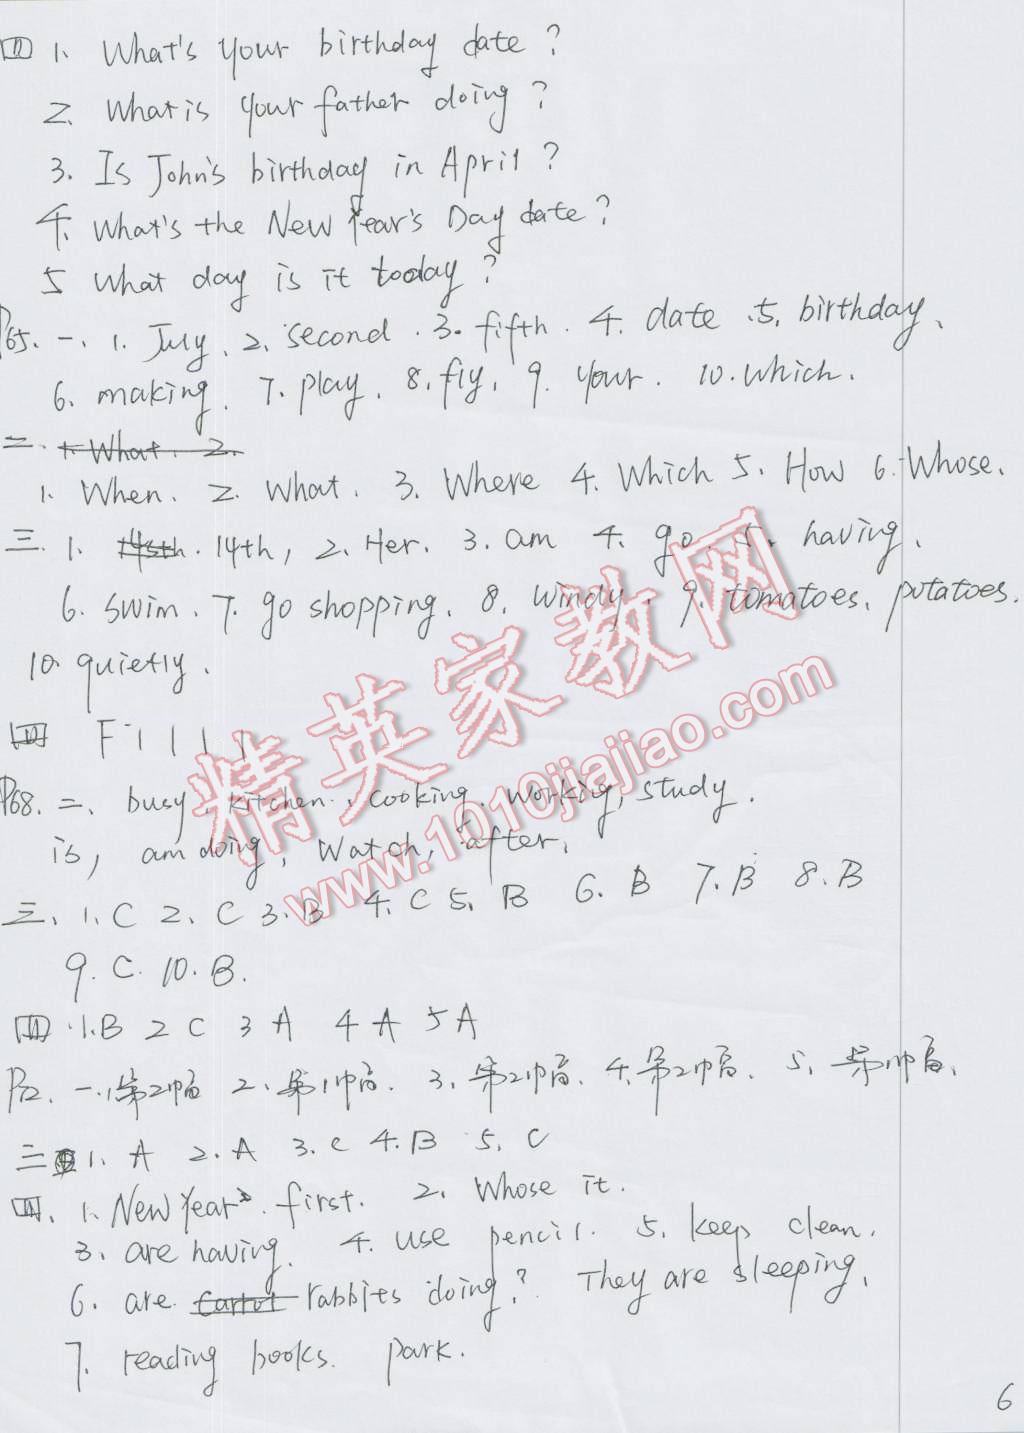 四 1、 What's your birthday date?
2、 What is your father doing?
3. Is John's birthday in April?
4、 What's the New Year's Day date?
5 What day is it today?
P65. 一、 1. July、 2、 second. 3. fifth. 4. date. 5. birthday、
6. making. 7. play. 8. fly. 9. your. 10. which.
二、 1. What. 2.
1. When. 2. What. 3. Where 4. Which 5. How 6. Whose.
三. 1. 14th, 2. Her. 3. am 4. go. 5. having.
6. swim. 7. go shopping. 8. windy. 9. tomatoes. potatoes.
10. quietly.
四 F
P68. 二、 busy. kitchen. cooking. working, study.
is, am doing, Watch, after.
三、 1. C 2. C 3. B 4. C 5. B 6. B 7. B 8. B
9. C. 10. B.
四 1. B 2 C 3 A 4 A 5 A
一. 1、第2 2、第1 3、第2 4、第2 5、第1
三 1. A 2. A 3. C 4. B 5. C
四. 1. New Year's. first. 2. Whose it.
3. are having. 4. use pencil. 5. keep clean.
6. are carrot rabbits doing? They are sleeping.
7. reading books. park.
6
精英家教网
www.1010jiajiao.com